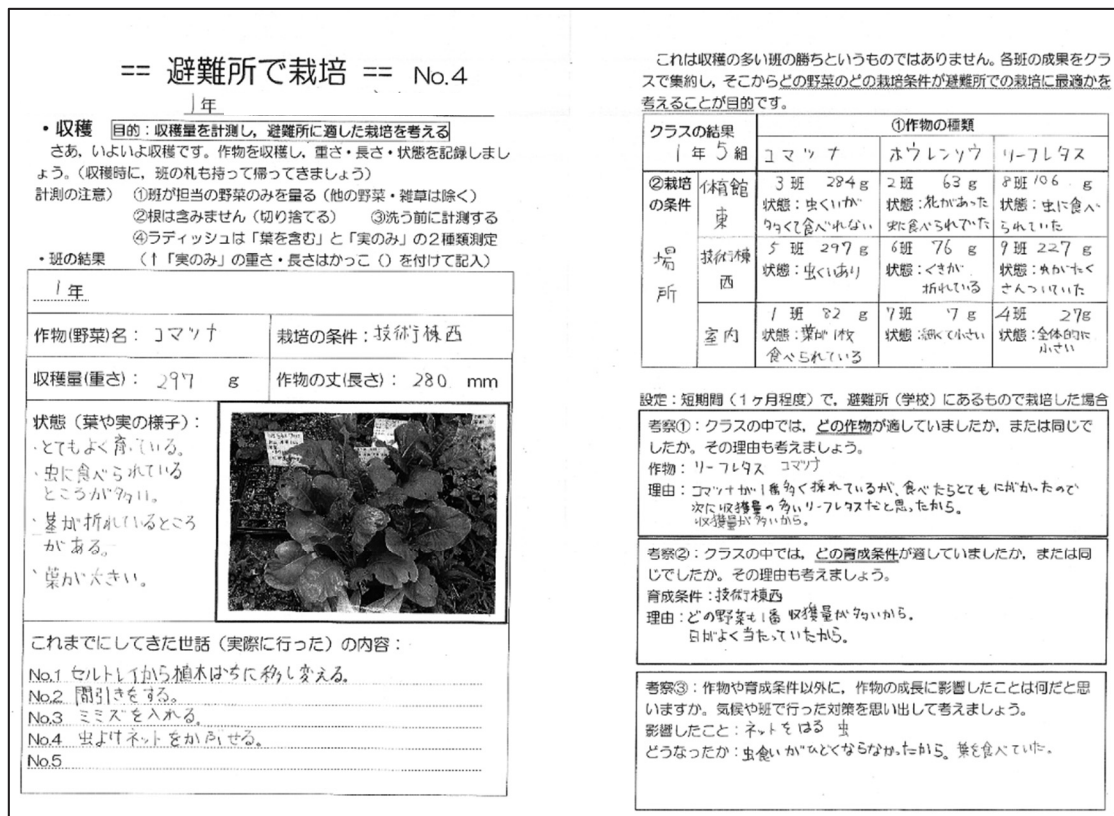 == 避難所で栽培 == No.4
1年
・収穫 目的：収穫量を計測し，避難所に適した栽培を考える
さあ、いよいよ収穫です。作物を収穫し，重さ・長さ・状態を記録しましょ
う。（収穫時に，班の札も持って帰ってきましょう）
計測の注意） ①班が担当の野菜のみを量る（他の野菜・雑草は除く）
②根は含みません（切り捨てる） ③洗う前に計測する
④ラディッシュは「葉を含む」と「実のみ」の２種類測定
・班の結果 （↑「実のみ」の重さ・長さはかっこ（）を付けて記入）
1年
作物(野菜)名：コマツナ 栽培の条件：技術棟西
収穫量(重さ)： 297 g 作物の丈(長さ)： 280 mm
状態（葉や実の様子）：
・とてもよく育っている。
・虫に食べられている
ところが多い。
・茎が折れているところ
がある。
・葉が大きい。
これまでにしてきた世話（実際に行った）の内容：
No.1 セルトレイから植木ばちに移し変える。
No.2 間引きをする。
No.3 ミミズを入れる。
No.4 虫よけネットをかぶせる。
No.5
これは収穫の多い班の勝ちというものではありません。各班の成果をクラ
スで集約し，そこからどの野菜のどの栽培条件が避難所での栽培に最適かを
考えることが目的です。
クラスの結果 ①作物の種類
1年5組 コマツナ ホウレンソウ リーフレタス
②栽培の条件 場所
体育館東 3班 284g 2班 63g 8班 106g
状態：虫くいが多くて食べれない 状態：花があった虫に食べられていた 状態：虫に食べられていた
技術棟西 5班 297g 6班 76g 9班 227g
状態：虫くいあり 状態：くきが折れている 状態：虫がたくさんついていた
室内 1班 82g 7班 7g 4班 27g
状態：葉が1枚食べられている 状態：細くて小さい 状態：全体的に小さい
設定：短期間（１ヶ月程度）で，避難所（学校）にあるもので栽培した場合
考察①：クラスの中では，どの作物が適していましたか，または同じで
したか。その理由も考えましょう。
作物：リーフレタス コマツナ
理由：コマツナが1番多く採れているが、食べたらとてもにがかったので
次に収穫量の多いリーフレタスだと思ったから。
収穫量が多いから。
考察②：クラスの中では，どの育成条件が適していましたか，または同
じでしたか。その理由も考えましょう。
育成条件：技術棟西
理由：どの野菜も1番収穫量が多いから。
日がよく当たっていたから。
考察③：作物や育成条件以外に，作物の成長に影響したことは何だと思
いますか。気候や班で行った対策を思い出して考えましょう。
影響したこと：ネットをはる 虫
どうなったか：虫食いがひどくならなかったから。葉を食べていた。